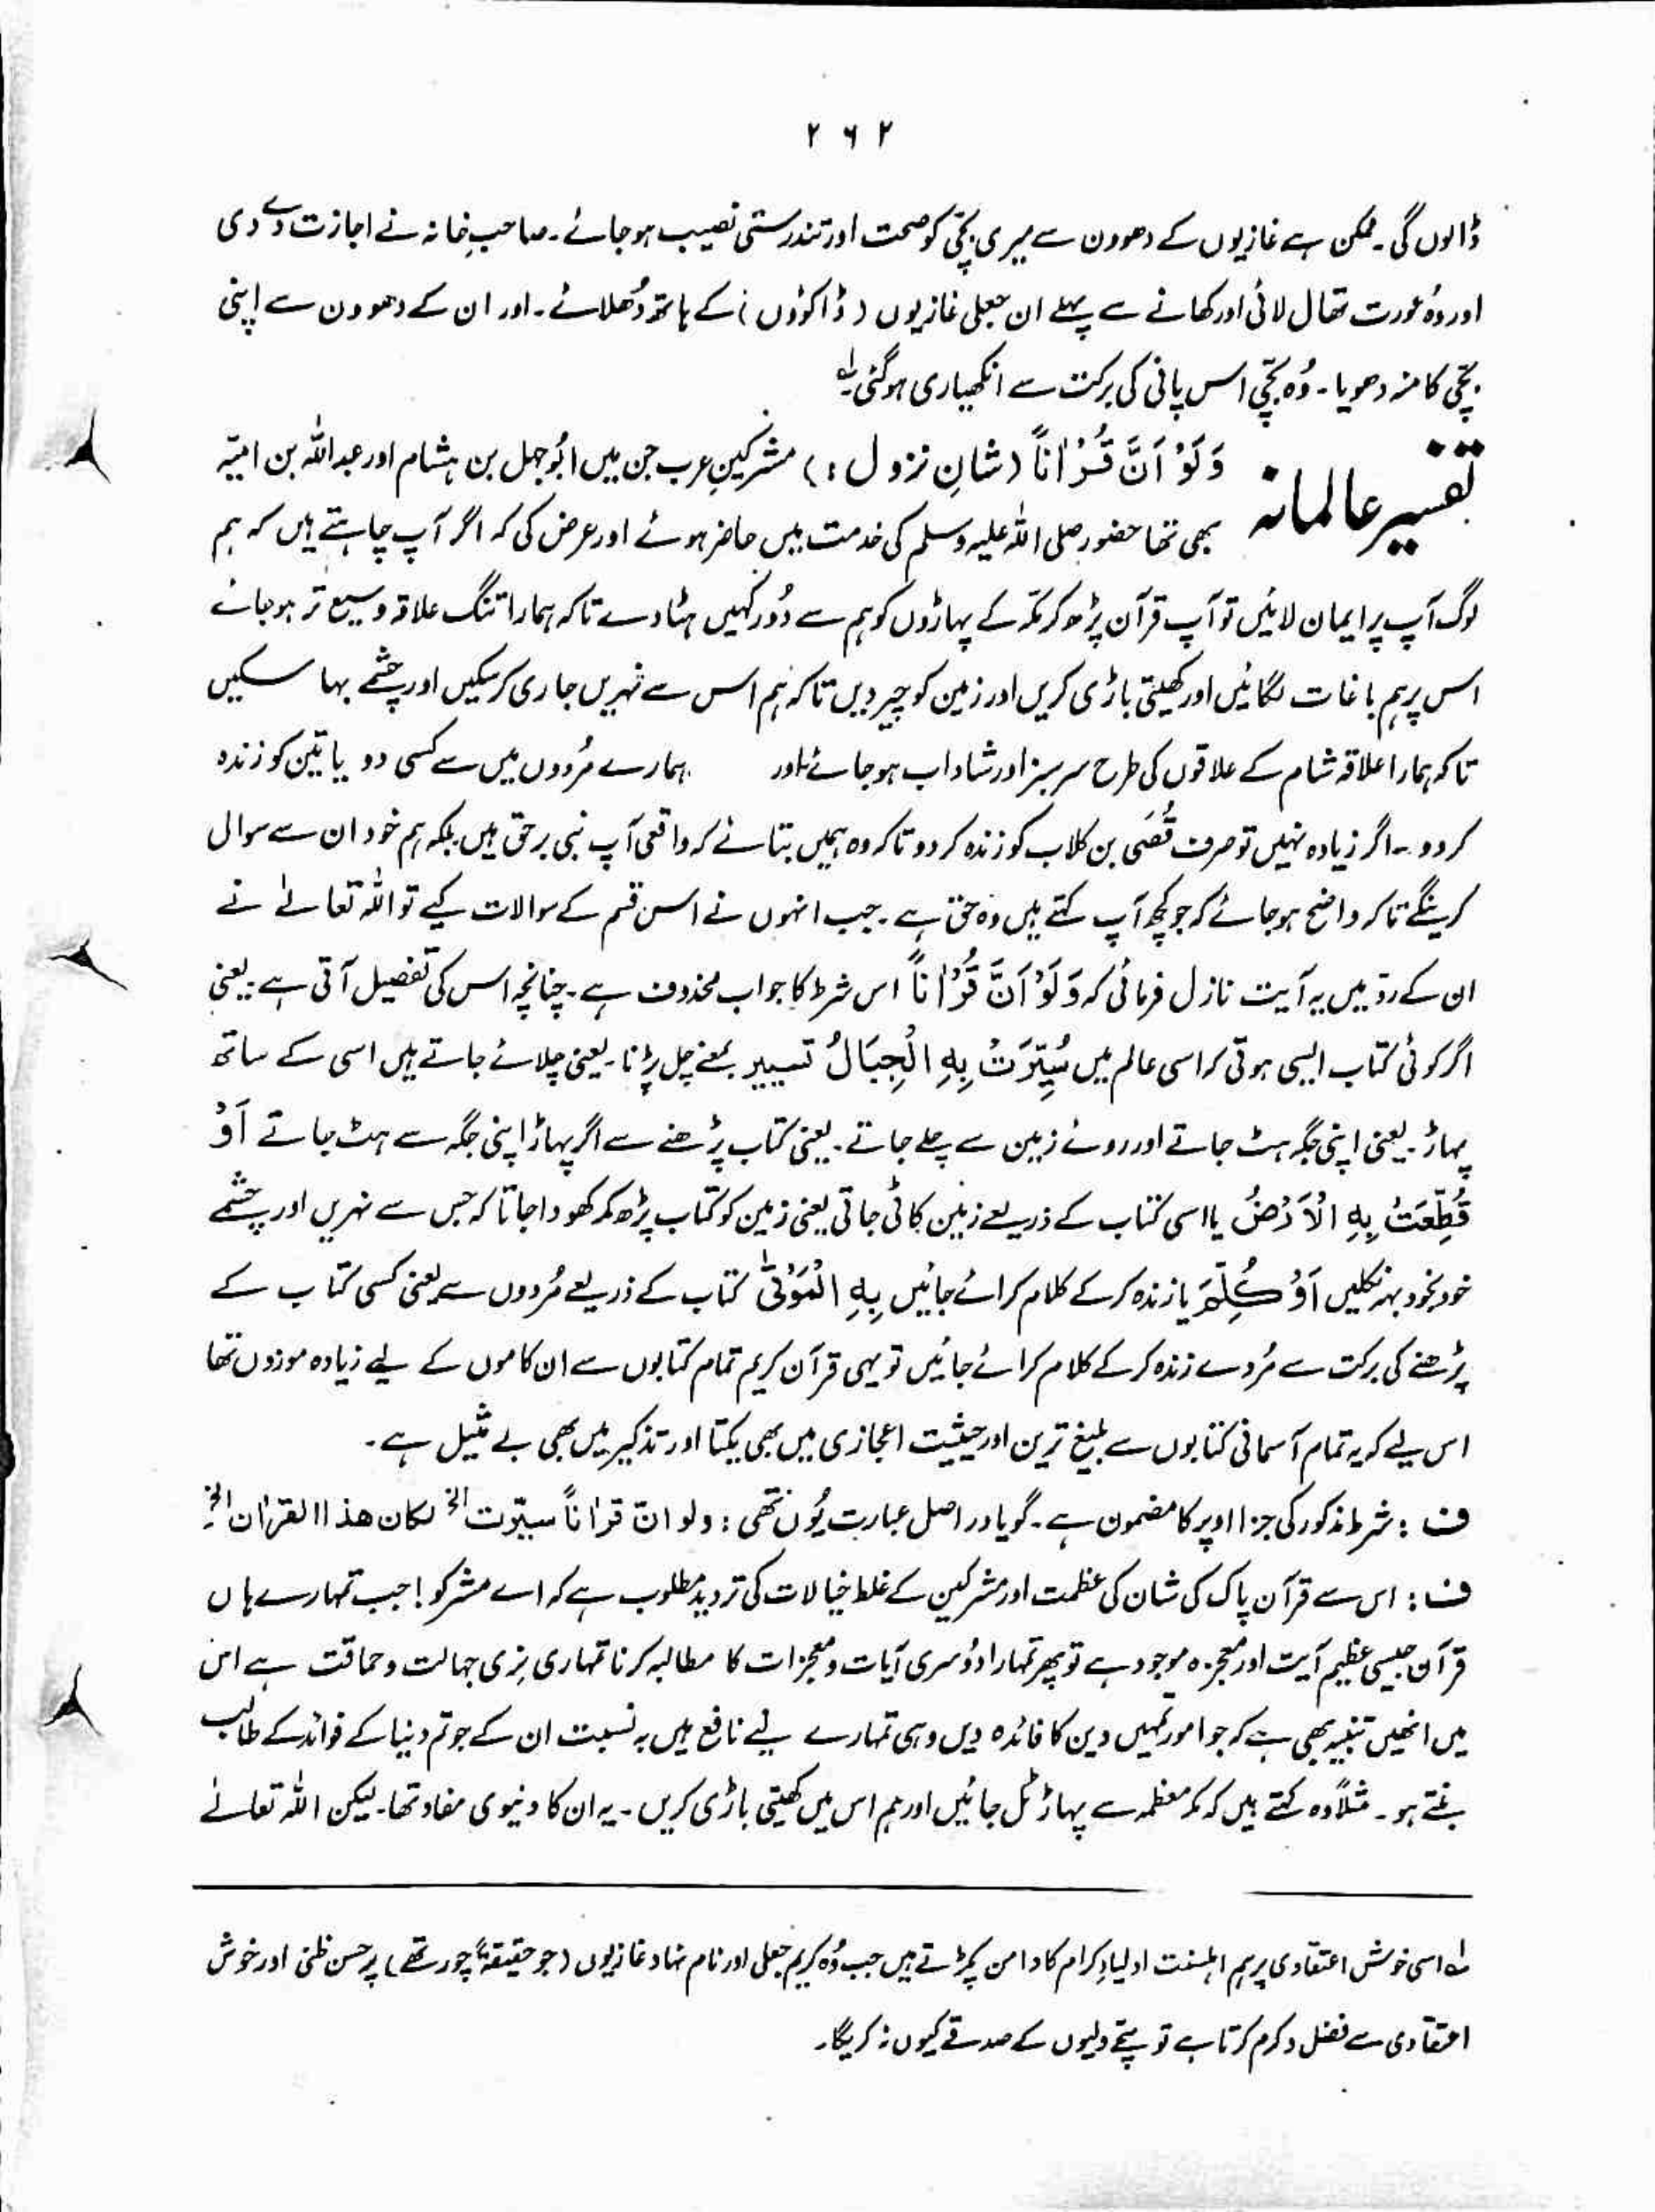 ۲۶۲
ڈالوں گی۔ ممکن ہے غازیوں کے دھوون سے میری بچّی کو صحت اور تندرستی نصیب ہو جائے۔ صاحبِ خانہ نے اجازت دے دی
اور وُہ عورت تھال لائی اور کھانے سے پہلے ان جعلی غازیوں (ڈاکوؤں) کے ہاتھ دُھلائے۔ اور ان کے دھوون سے اپنی
بچّی کا منہ دھویا۔ وُہ بچّی اس پانی کی برکت سے انکھیاری ہو گئی۔؎۱
تفسیر عالمانہ وَلَوْ اَنَّ قُرْاٰناً (شانِ نزول :) مشرکینِ عرب جن میں ابُوجہل بن ہشام اور عبداللہ بن امیّہ
بھی تھا حضور صلی اللہ علیہ وسلم کی خدمت میں حاضر ہوئے اور عرض کی کہ اگر آپ چاہتے ہیں کہ ہم
لوگ آپ پر ایمان لائیں تو آپ قرآن پڑھ کر مکّہ کے پہاڑوں کو ہم سے دُور کہیں ہٹا دے تاکہ ہمارا تنگ علاقہ وسیع تر ہو جائے
اس پر ہم باغات لگائیں اور کھیتی باڑی کریں اور زمین کو چیر دیں تاکہ ہم اس سے نہریں جاری کر سکیں اور چشمے بہا سکیں
تاکہ ہمارا علاقہ شام کے علاقوں کی طرح سرسبز اور شاداب ہو جائے اور ہمارے مُردوں میں سے کسی دو یا تین کو زندہ
کر دو۔ اگر زیادہ نہیں تو صرف قُصَی بن کلاب کو زندہ کر دو تاکہ وہ ہمیں بتائے کہ واقعی آپ نبی برحق ہیں بلکہ ہم خود ان سے سوال
کرینگے تاکہ واضح ہو جائے کہ جو کچھ آپ کہتے ہیں وہ حق ہے۔ جب انہوں نے اس قسم کے سوالات کیے تو اللہ تعالےٰ نے
ان کے ردّ میں یہ آیت نازل فرمائی کہ وَلَوْ اَنَّ قُرْاٰناً اس شرط کا جواب محذوف ہے۔ چنانچہ اس کی تفصیل آتی ہے۔ یعنی
اگر کوئی کتاب ایسی ہوتی کہ اسی عالم میں سُیِّرَتْ بِهِ الْجِبَالُ تسییر بمعنے چل پڑنا۔ یعنی چلائے جاتے ہیں اسی کے ساتھ
پہاڑ۔ یعنی اپنی جگہ ہٹ جاتے اور روئے زمین سے چلے جاتے۔ یعنی کتاب پڑھنے سے اگر پہاڑ اپنی جگہ سے ہٹ جاتے اَوْ
قُطِّعَتْ بِهِ الْاَرْضُ یا اسی کتاب کے ذریعے زمین کاٹی جاتی یعنی زمین کو کتاب پڑھ کر کھودا جاتا کہ جس سے نہریں اور چشمے
خود بخود بہہ نکلیں اَوْ کُلِّمَ یا زندہ کر کے کلام کرائے جائیں بِهِ الْمَوْتٰى کتاب کے ذریعے مُردوں سے یعنی کسی کتاب کے
پڑھنے کی برکت سے مُردے زندہ کر کے کلام کرائے جائیں تو یہی قرآن کریم تمام کتابوں سے ان کاموں کے لیے زیادہ موزوں تھا
اس لیے کہ یہ تمام آسمانی کتابوں سے بلیغ ترین اور حیثیت اعجازی میں بھی یکتا اور تذکیر میں بھی بے مثیل ہے۔
ف : شرط مذکور کی جزا اوپر کا مضمون ہے۔ گویا دراصل عبارت یُوں تھی : ولو انّ قراٰناً سیّرت الخ لکان هذا القراٰن الخ۔
ف : اس سے قرآن پاک کی شان کی عظمت اور مشرکین کے غلط خیالات کی تردید مطلوب ہے کہ اے مشرکو! جب تمہارے ہاں
قرآن جیسی عظیم آیت اور معجزہ موجود ہے تو پھر تمہارا دُوسری آیات و معجزات کا مطالبہ کرنا تمہاری نِری جہالت و حماقت ہے اس
میں انھیں تنبیہ بھی ہے کہ جو امور تمہیں دین کا فائدہ دیں وہی تمہارے لیے نافع ہیں بہ نسبت ان کے جو تم دنیا کے فوائد کے طالب
بنتے ہو۔ مثلاً وہ کہتے ہیں کہ مکہ معظمہ سے پہاڑ ٹل جائیں اور ہم اس میں کھیتی باڑی کریں۔ یہ ان کا دنیوی مفاد تھا۔ لیکن اللہ تعالےٰ
؎۱ اسی خوش اعتقادی پر ہم اہلسنت اولیاءِ کرام کا دامن پکڑتے ہیں جب وُہ کریم جعلی اور نام نہاد غازیوں (جو حقیقۃً چور تھے) پر حسن ظنی اور خوش
اعتقادی سے فضل و کرم کرتا ہے تو سچّے ولیوں کے صدقے کیوں نہ کریگا۔